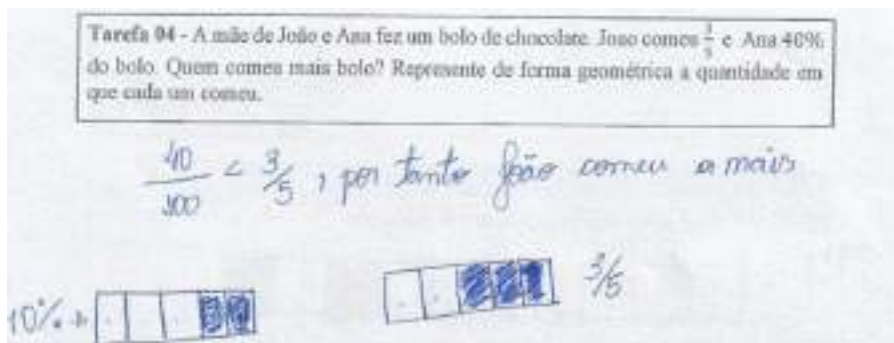 Tarefa 04 - A mãe de João e Ana fez um bolo de chocolate. Joao comeu 3/5 e Ana 40%
do bolo. Quem comeu mais bolo? Represente de forma geométrica a quantidade em
que cada um comeu.
40/100 < 3/5 , por tanto João comeu a mais
40% → 3/5